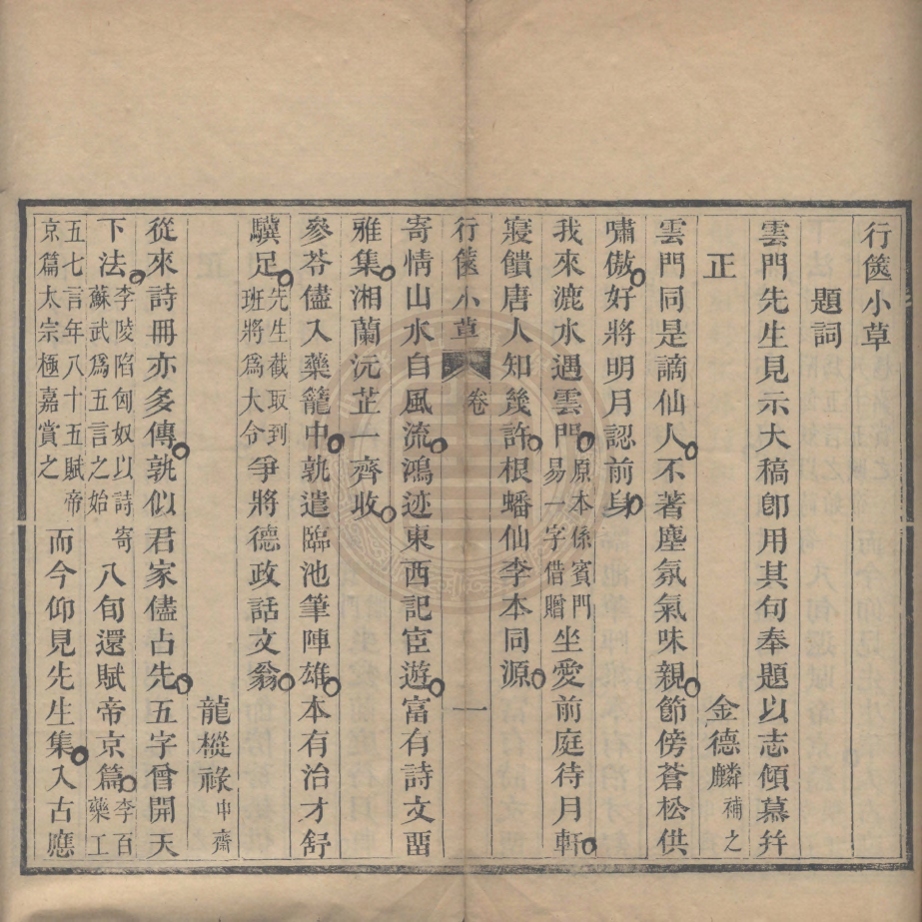 行篋小草
題詞
雲門先生見示大稿卽用其句奉題以志傾慕幷
正　金德麟補之
雲門同是謫仙人不著塵氛氣味親節傍蒼松供
嘯傲好將明月認前身
我來漉水遇雲門原本係賓門易一字借贈坐愛前庭待月軒
寢饋唐人知幾許根蟠仙李本同源
行篋小草　卷　一
寄情山水自風流鴻迹東西記宦遊富有詩文畱
雅集湘蘭沅芷一齊收
參苓儘入藥籠中孰遣臨池筆陣雄本有治才舒
驥足先生截取到班將爲大令爭將德政話文翁
龍樅祿申齋
從來詩冊亦多傳孰似君家儘占先五字曾開天
下法李陵陷匈奴以詩寄蘇武爲五言之始八旬還賦帝京篇李百藥工
五七言年八十五賦帝京篇太宗極嘉賞之而今仰見先生集入古應